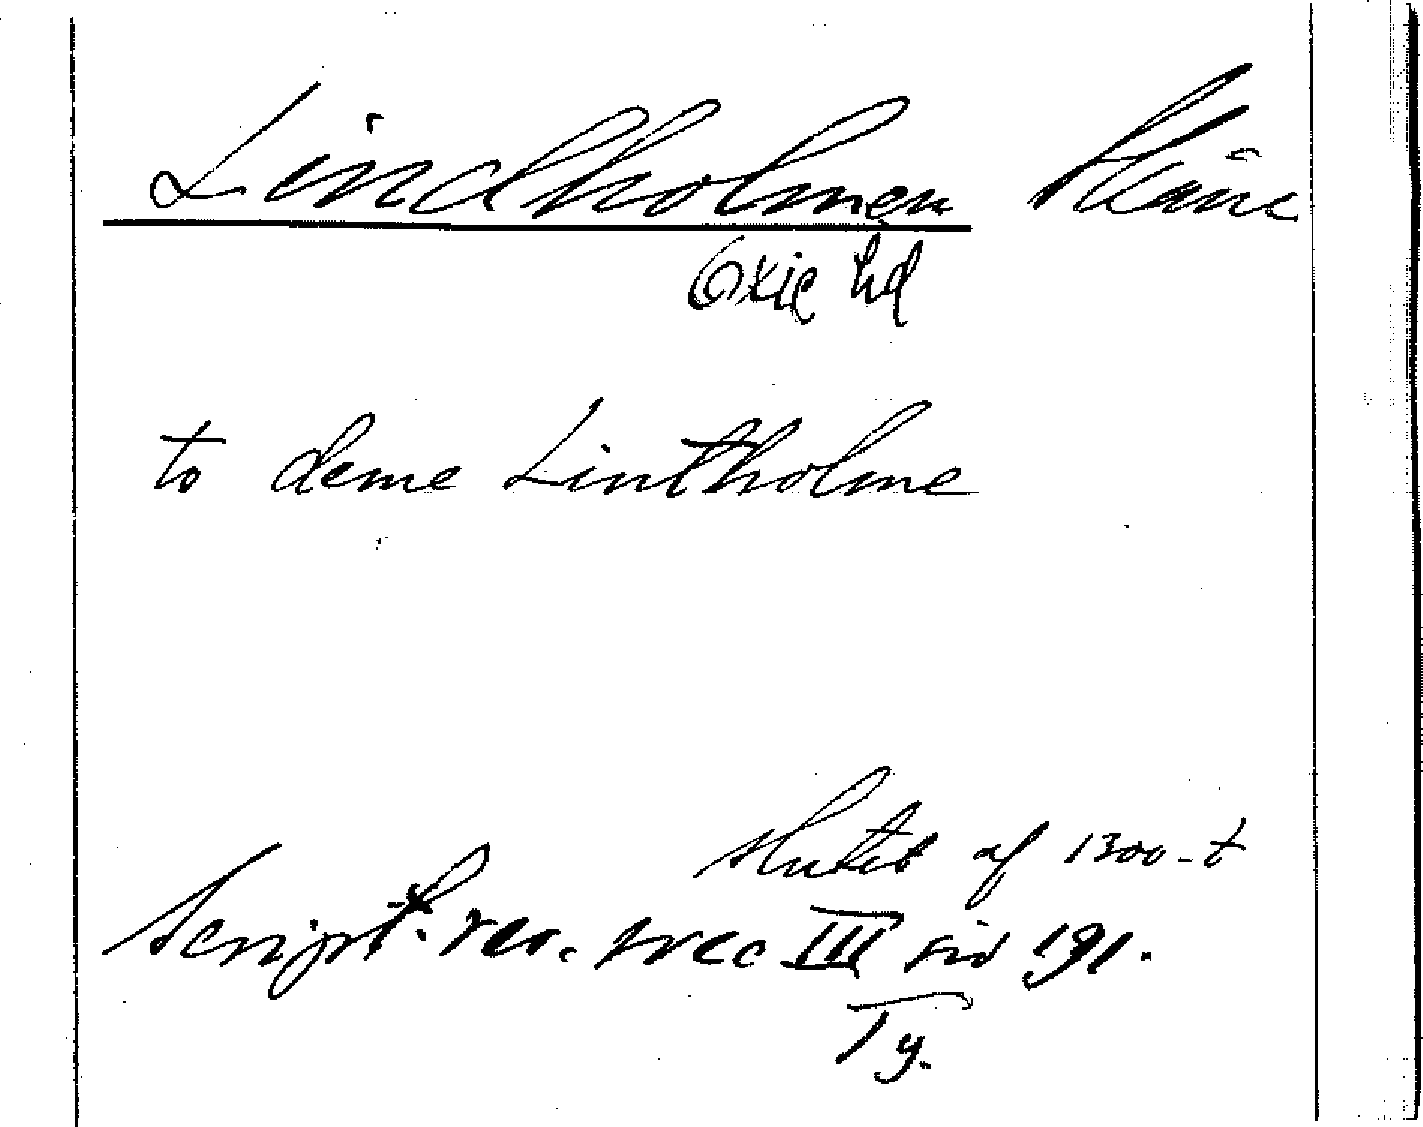 Lindholmen Skåne
Oxie hd
to deme Lintholme
slutet af 1300-t
Script. rer. svec III sid 191.
Ty.